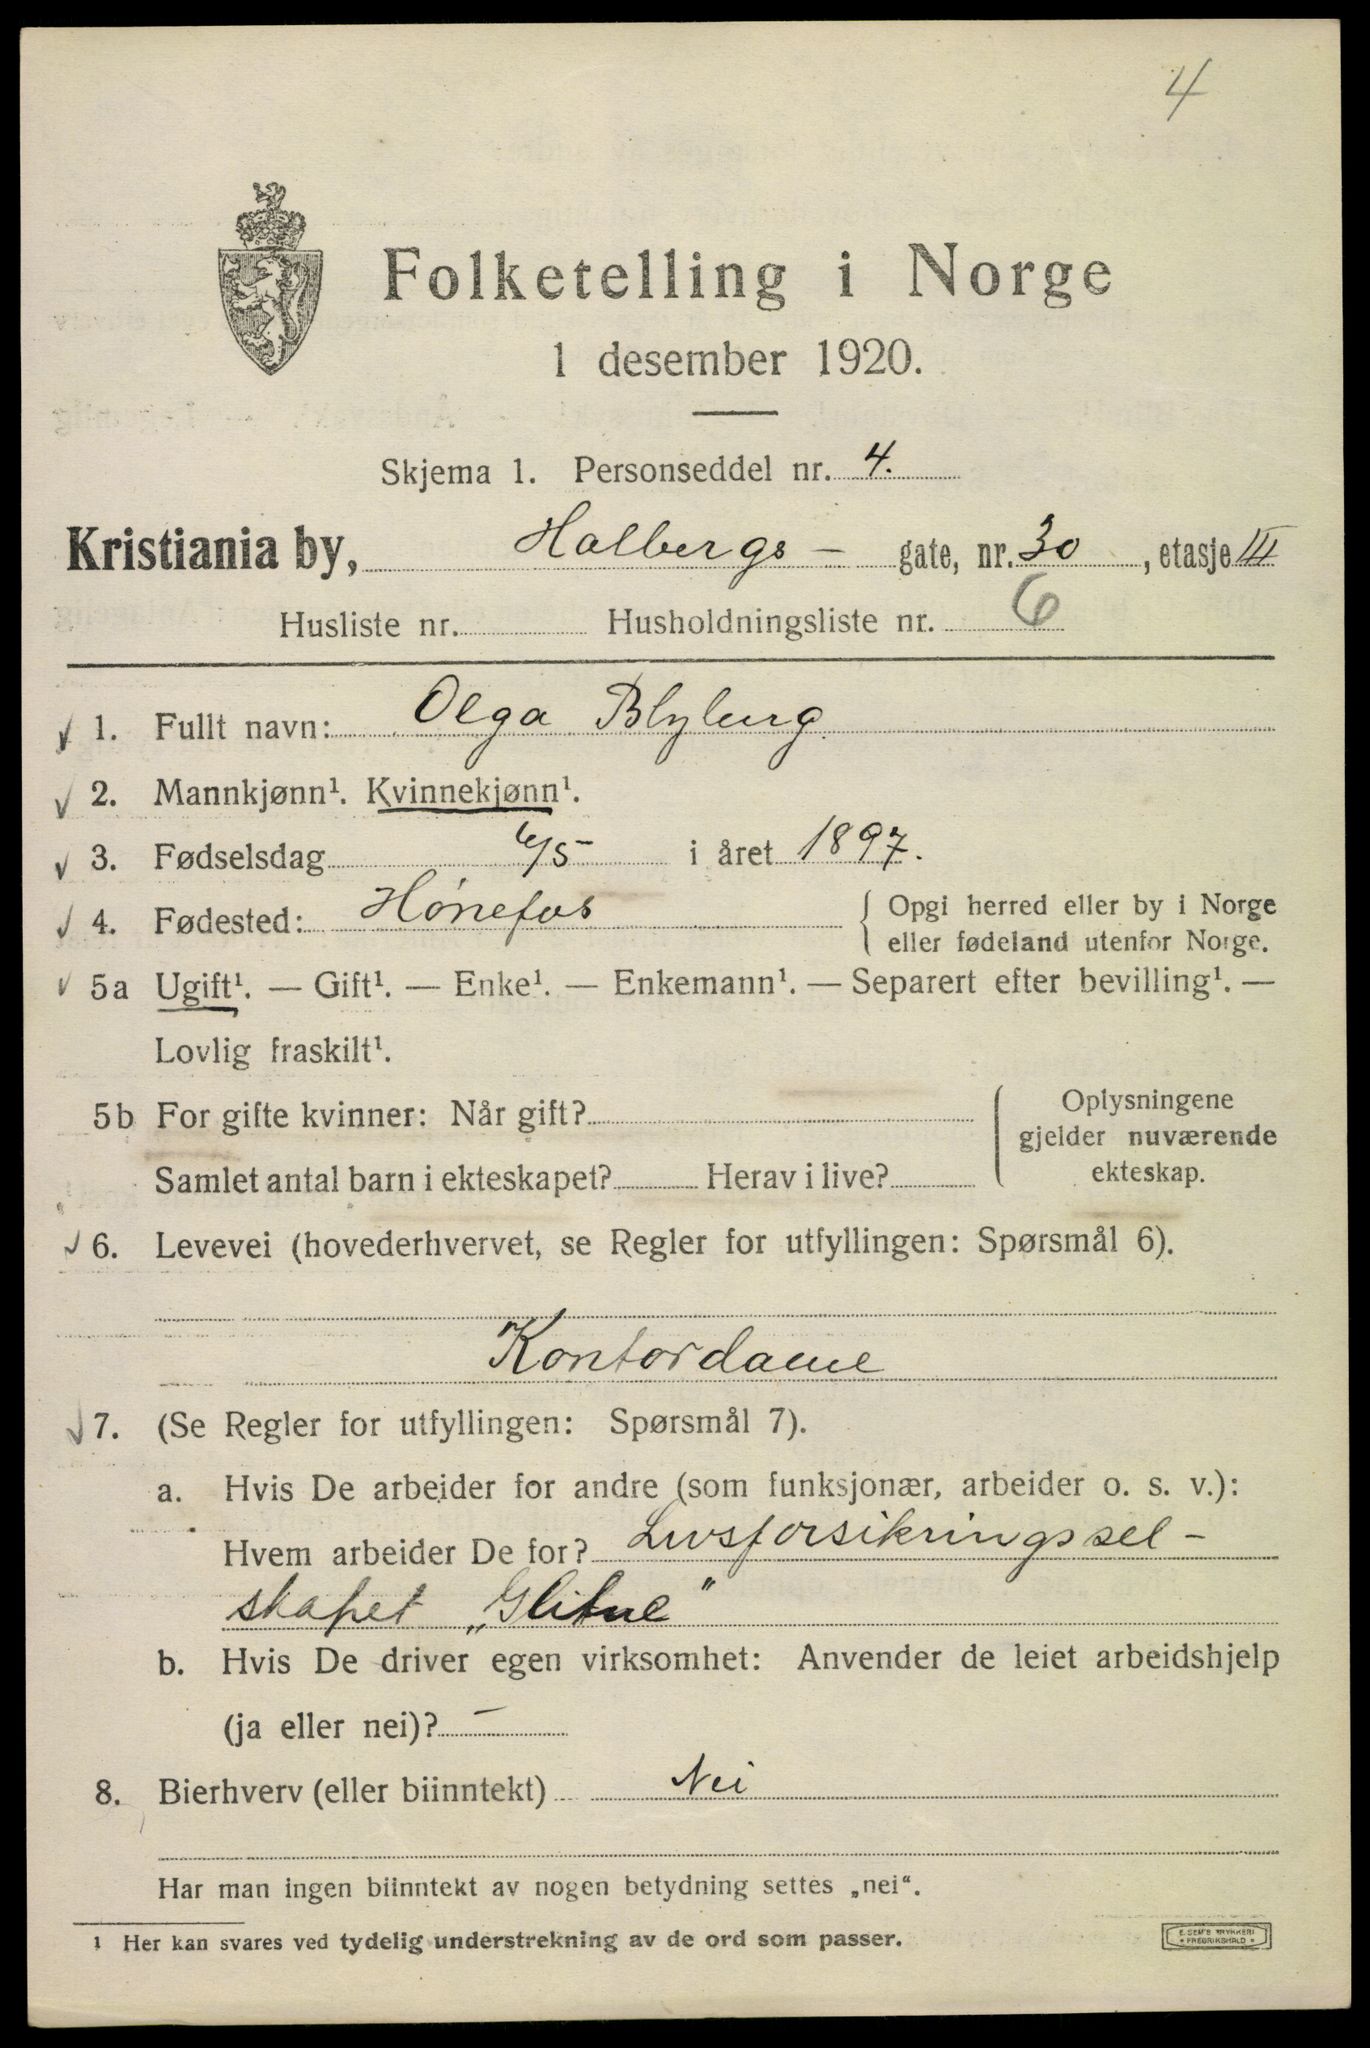 4
Folketelling i Norge
1 desember 1920.
Skjema 1. Personseddel nr. 4.
Kristiania by, Holbergs - gate, nr. 30, etasje III
Husliste nr. Husholdningsliste nr. 6
1. Fullt navn: Olga Blyberg
2. Mannkjønn¹. Kvinnekjønn¹.
3. Fødselsdag 6/5 i året 1897.
4. Fødested: Hønefos { Opgi herred eller by i Norge
eller fødeland utenfor Norge.
5a Ugift¹. — Gift¹. — Enke¹. — Enkemann¹. — Separert efter bevilling¹. —
Lovlig fraskilt¹.
5b For gifte kvinner: Når gift? { Oplysningene
gjelder nuværende
Samlet antal barn i ekteskapet? Herav i live? ekteskap.
6. Levevei (hovederhvervet, se Regler for utfyllingen: Spørsmål 6).
Kontordame
7. (Se Regler for utfyllingen: Spørsmål 7).
a. Hvis De arbeider for andre (som funksjonær, arbeider o. s. v.):
Hvem arbeider De for? Livsforsikringssel-
skapet „Glitne"
b. Hvis De driver egen virksomhet: Anvender de leiet arbeidshjelp
(ja eller nei)? —
8. Bierhverv (eller biinntekt) Nei
Har man ingen biinntekt av nogen betydning settes „nei“.
1 Her kan svares ved tydelig understrekning av de ord som passer.
E. SEM'S TRYKKERI
FREDRIKSHALD